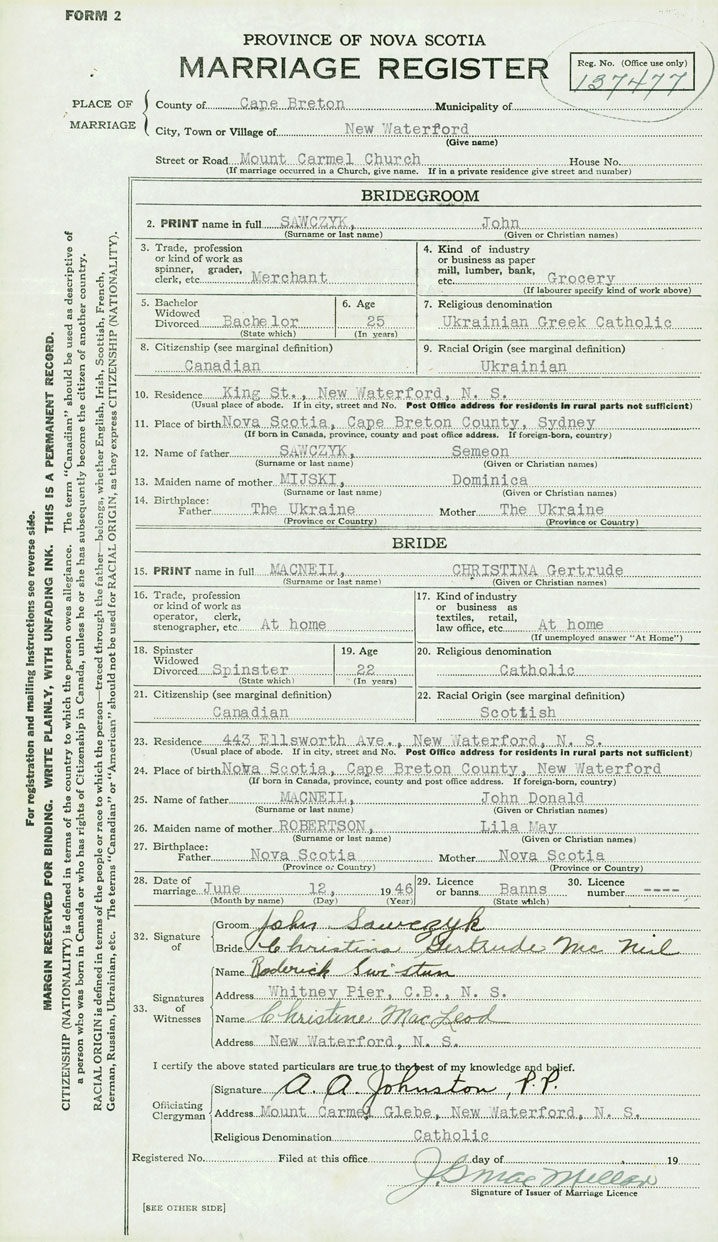 FORM 2
PROVINCE OF NOVA SCOTIA
MARRIAGE REGISTER
Reg. No. (Office use only)
137477
PLACE OF MARRIAGE
County of Cape Breton Municipality of
City, Town or Village of New Waterford
(Give name)
Street or Road Mount Carmel Church House No.
(If marriage occurred in a Church, give name. If in a private residence give street and number)
BRIDEGROOM
2. PRINT name in full SAWCZYK, John
(Surname or last name) (Given or Christian names)
3. Trade, profession or kind of work as spinner, grader, clerk, etc. Merchant
4. Kind of industry or business as paper mill, lumber, bank, etc. Grocery
(If labourer specify kind of work above)
5. Bachelor Widowed Divorced Bachelor
(State which)
6. Age 25
(In years)
7. Religious denomination
Ukrainian Greek Catholic
8. Citizenship (see marginal definition)
Canadian
9. Racial Origin (see marginal definition)
Ukrainian
10. Residence King St., New Waterford, N. S.
(Usual place of abode. If in city, street and No. Post Office address for residents in rural parts not sufficient)
11. Place of birth Nova Scotia, Cape Breton County, Sydney
(If born in Canada, province, county and post office address. If foreign-born, country)
12. Name of father SAWCZYK, Semeon
(Surname or last name) (Given or Christian names)
13. Maiden name of mother MIJSKI, Dominica
(Surname or last name) (Given or Christian names)
14. Birthplace:
Father The Ukraine Mother The Ukraine
(Province or Country) (Province or Country)
BRIDE
15. PRINT name in full MACNEIL, CHRISTINA Gertrude
(Surname or last name) (Given or Christian names)
16. Trade, profession or kind of work as operator, clerk, stenographer, etc At home
17. Kind of industry or business as textiles, retail, law office, etc. At home
(If unemployed answer "At Home")
18. Spinster Widowed Divorced Spinster
(State which)
19. Age 22
(In years)
20. Religious denomination
Catholic
21. Citizenship (see marginal definition)
Canadian
22. Racial Origin (see marginal definition)
Scottish
23. Residence 443 Ellsworth Ave., New Waterford, N. S.
(Usual place of abode. If in city, street and No. Post Office address for residents in rural parts not sufficient)
24. Place of birth Nova Scotia, Cape Breton County, New Waterford
(If born in Canada, province, county and post office address. If foreign-born, country)
25. Name of father MACNEIL, John Donald
(Surname or last name) (Given or Christian names)
26. Maiden name of mother ROBERTSON, Lila May
(Surname or last name) (Given or Christian names)
27. Birthplace:
Father Nova Scotia Mother Nova Scotia
(Province or Country) (Province or Country)
28. Date of marriage June 12, 1946
(Month by name) (Day) (Year)
29. Licence or banns Banns
(State which)
30. Licence number ----
32. Signature of
Groom John Sawczyk
Bride Christina Gertrude Mc Neil
33. Signatures of Witnesses
Name Roderick Swistun
Address Whitney Pier, C.B., N. S.
Name Christine MacLeod
Address New Waterford, N. S.
I certify the above stated particulars are true to the best of my knowledge and belief.
Officiating Clergyman
Signature A. A. Johnston, P.P.
Address Mount Carmel Glebe, New Waterford, N. S.
Religious Denomination Catholic
Registered No. Filed at this office day of , 19
J. G. MacMillan
Signature of Issuer of Marriage Licence
[SEE OTHER SIDE]
For registration and mailing instructions see reverse side.
MARGIN RESERVED FOR BINDING. WRITE PLAINLY, WITH UNFADING INK. THIS IS A PERMANENT RECORD.
CITIZENSHIP (NATIONALITY) is defined in terms of the country to which the person owes allegiance. The term "Canadian" should be used as descriptive of
a person who was born in Canada or who has rights of Citizenship in Canada, unless he or she has subsequently become the citizen of another country.
RACIAL ORIGIN is defined in terms of the people or race to which the person—traced through the father—belongs, whether English, Irish, Scottish, French,
German, Russian, Ukrainian, etc. The terms "Canadian" or "American" should not be used for RACIAL ORIGIN, as they express CITIZENSHIP (NATIONALITY).